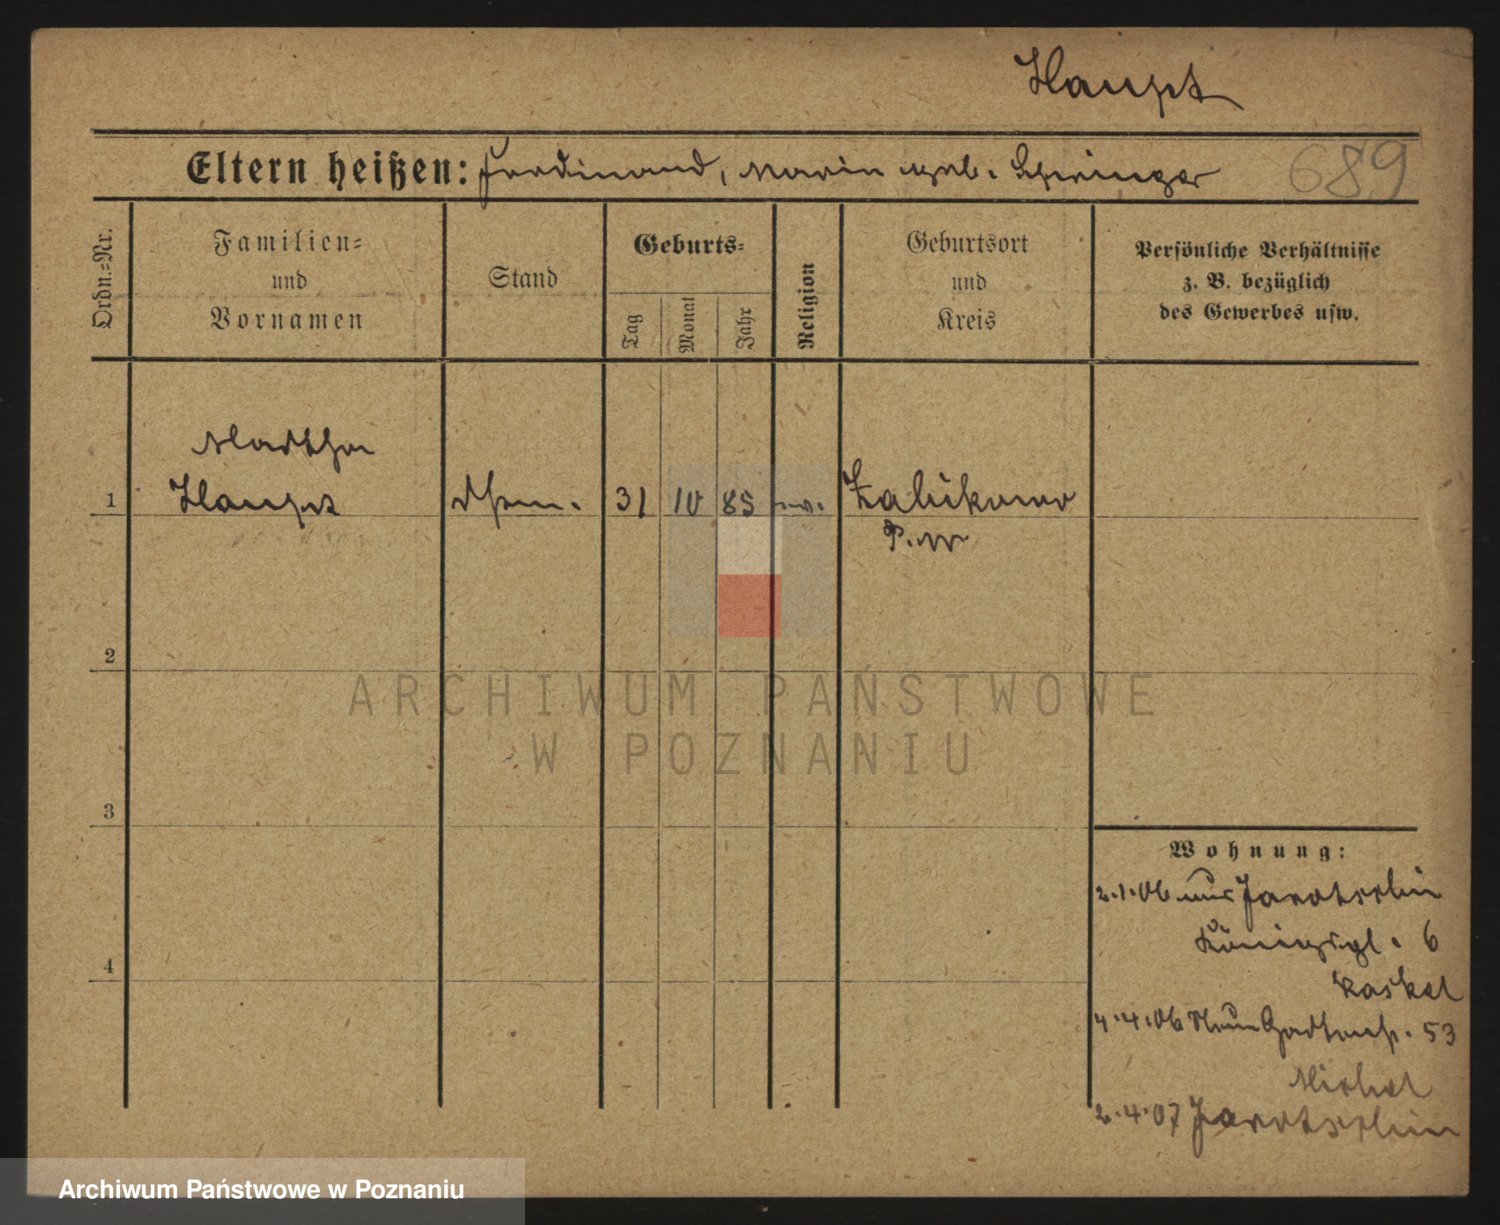 Haupt
Eltern heißen: Ferdinand, Marie geb. Springer
689
Ordn.=Nr.
Familien=
und
Vornamen
Stand
Geburts=
Tag
Monat
Jahr
Religion
Geburtsort
und
Kreis
Persönliche Verhältnisse
z. B. bezüglich
des Gewerbes usw.
Martha
1 Haupt 31 10 85 Zabikowo
P. W
2
3
4
ARCHIWUM PAŃSTWOWE
W POZNANIU
Wohnung:
2.1.06 aus Jarotschin
Königspl. 6
Kaskel
4.4.06 Neue Gartenstr. 53
Michel
2.4.07 Jarotschin
Archiwum Państwowe w Poznaniu